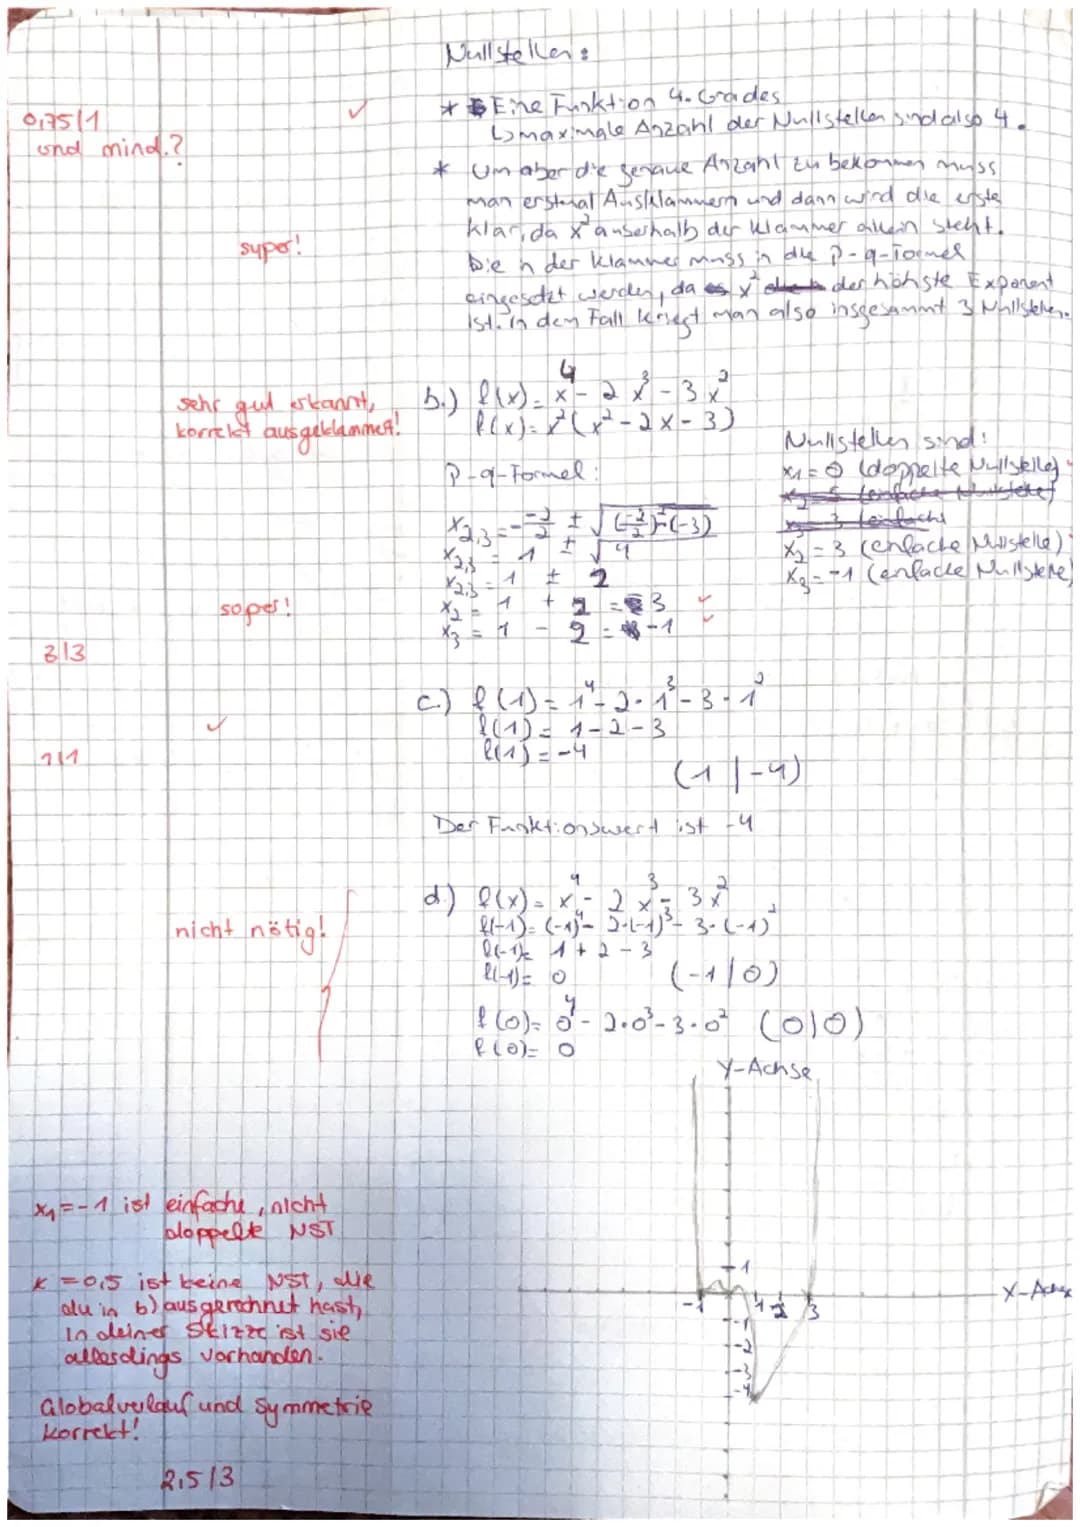 Nullstellen:
* Eine Funktion 4. Grades
↳ maximale Anzahl der Nullstellen sind also 4.
0,75/1
und mind.?
* Um aber die genaue Anzahl zu bekommen muss
man erstmal Ausklammern und dann wird die erste
klar, da x² außerhalb der Klammer allein steht.
super!
Die in der Klammer muss in die P-q-Formel
eingesetzt werden, da x² der höhste Exponent
ist. In dem Fall kriegt man also insgesammt 3 Nullstellen.
sehr gut erkannt,
korrekt ausgeklammert!
b.) f(x) = x⁴ - 2x³ - 3x²
f(x) = x²(x² - 2x - 3)
P-q-Formel:
x2,3 = - -2/2 ± √((-2/2)² - (-3))
x2,3 = 1 ± √4
x2,3 = 1 ± 2
x2 = 1 + 2 = 3
x3 = 1 - 2 = -1
Nullstellen sind:
x1 = 0 (doppelte Nullstelle)
x2 = 3 (einfache Nullstelle)
x3 = -1 (einfache Nullstelle)
super!
3/3
c.) f(1) = 1⁴ - 2 · 1³ - 3 · 1²
f(1) = 1 - 2 - 3
f(1) = -4
(1 | -4)
1/1
Der Funktionswert ist -4
d.) f(x) = x⁴ - 2x³ - 3x²
f(-1) = (-1)⁴ - 2·(-1)³ - 3·(-1)²
f(-1) = 1 + 2 - 3
f(-1) = 0 (-1|0)
nicht nötig!
f(0) = 0⁴ - 2·0³ - 3·0² (0|0)
f(0) = 0
Y-Achse
1
-1 1 2 3
X-Achse
-1
-2
-3
-4
x1 = -1 ist einfache, nicht
doppelte NST
x = 0,5 ist keine NST, die
du in b) ausgerechnet hast,
in deiner Skizze ist sie
allerdings vorhanden.
Globalverlauf und Symmetrie
korrekt!
2,5/3